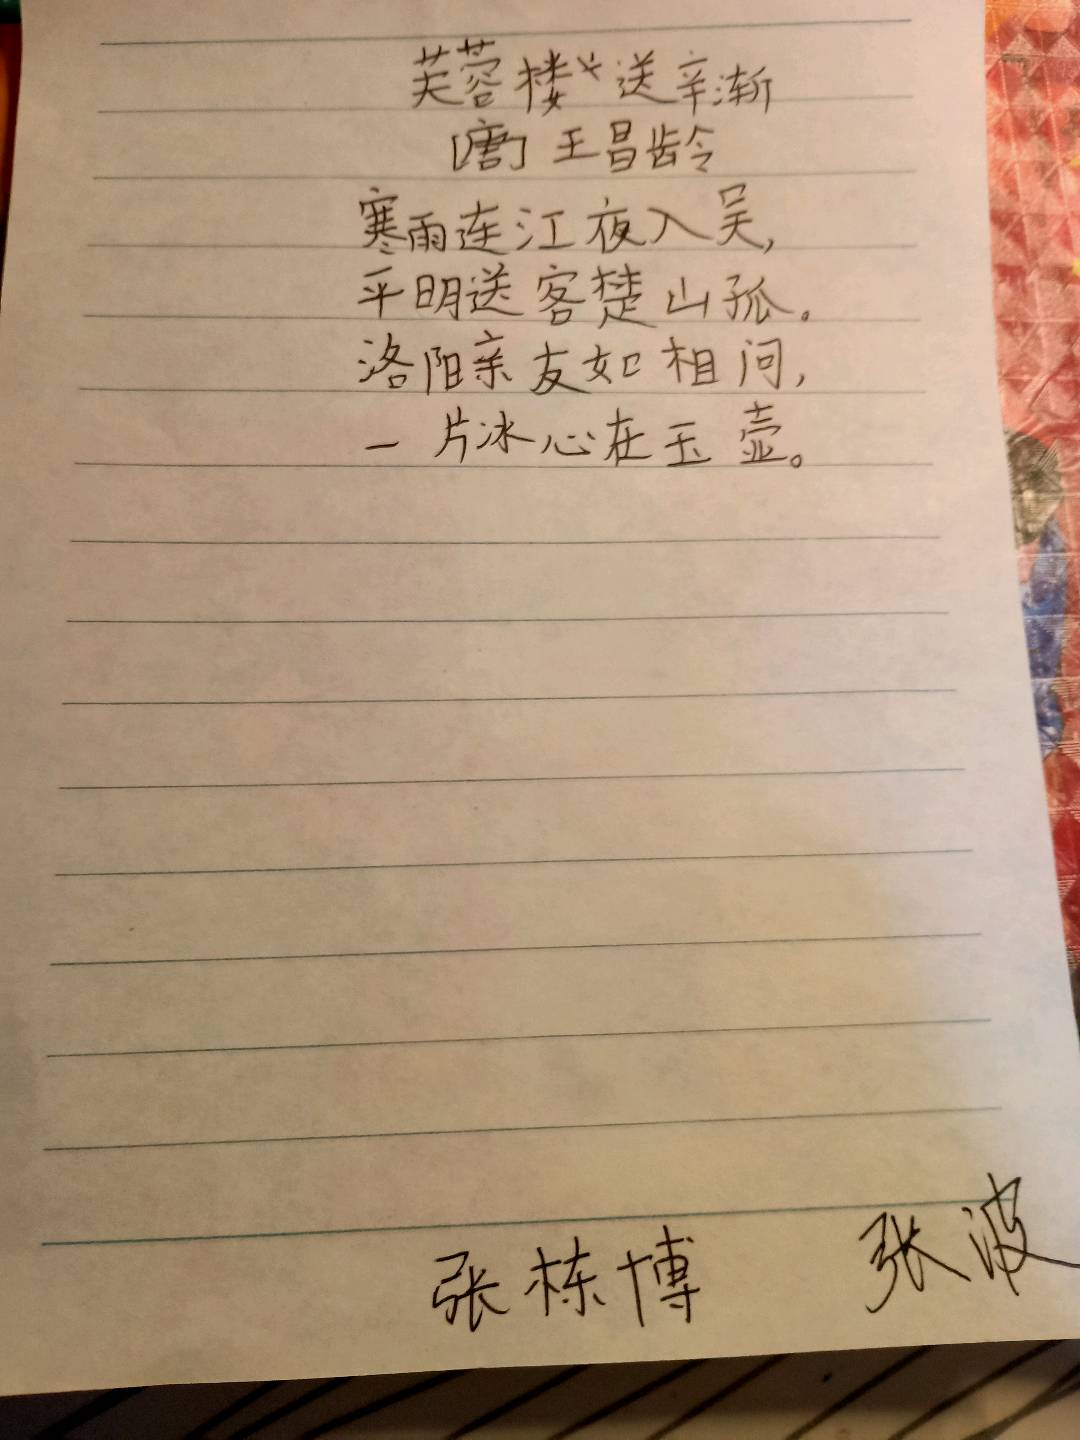 芙蓉楼送辛渐
[唐] 王昌龄
寒雨连江夜入吴,
平明送客楚山孤。
洛阳亲友如相问,
一片冰心在玉壶。
张栋博 张波